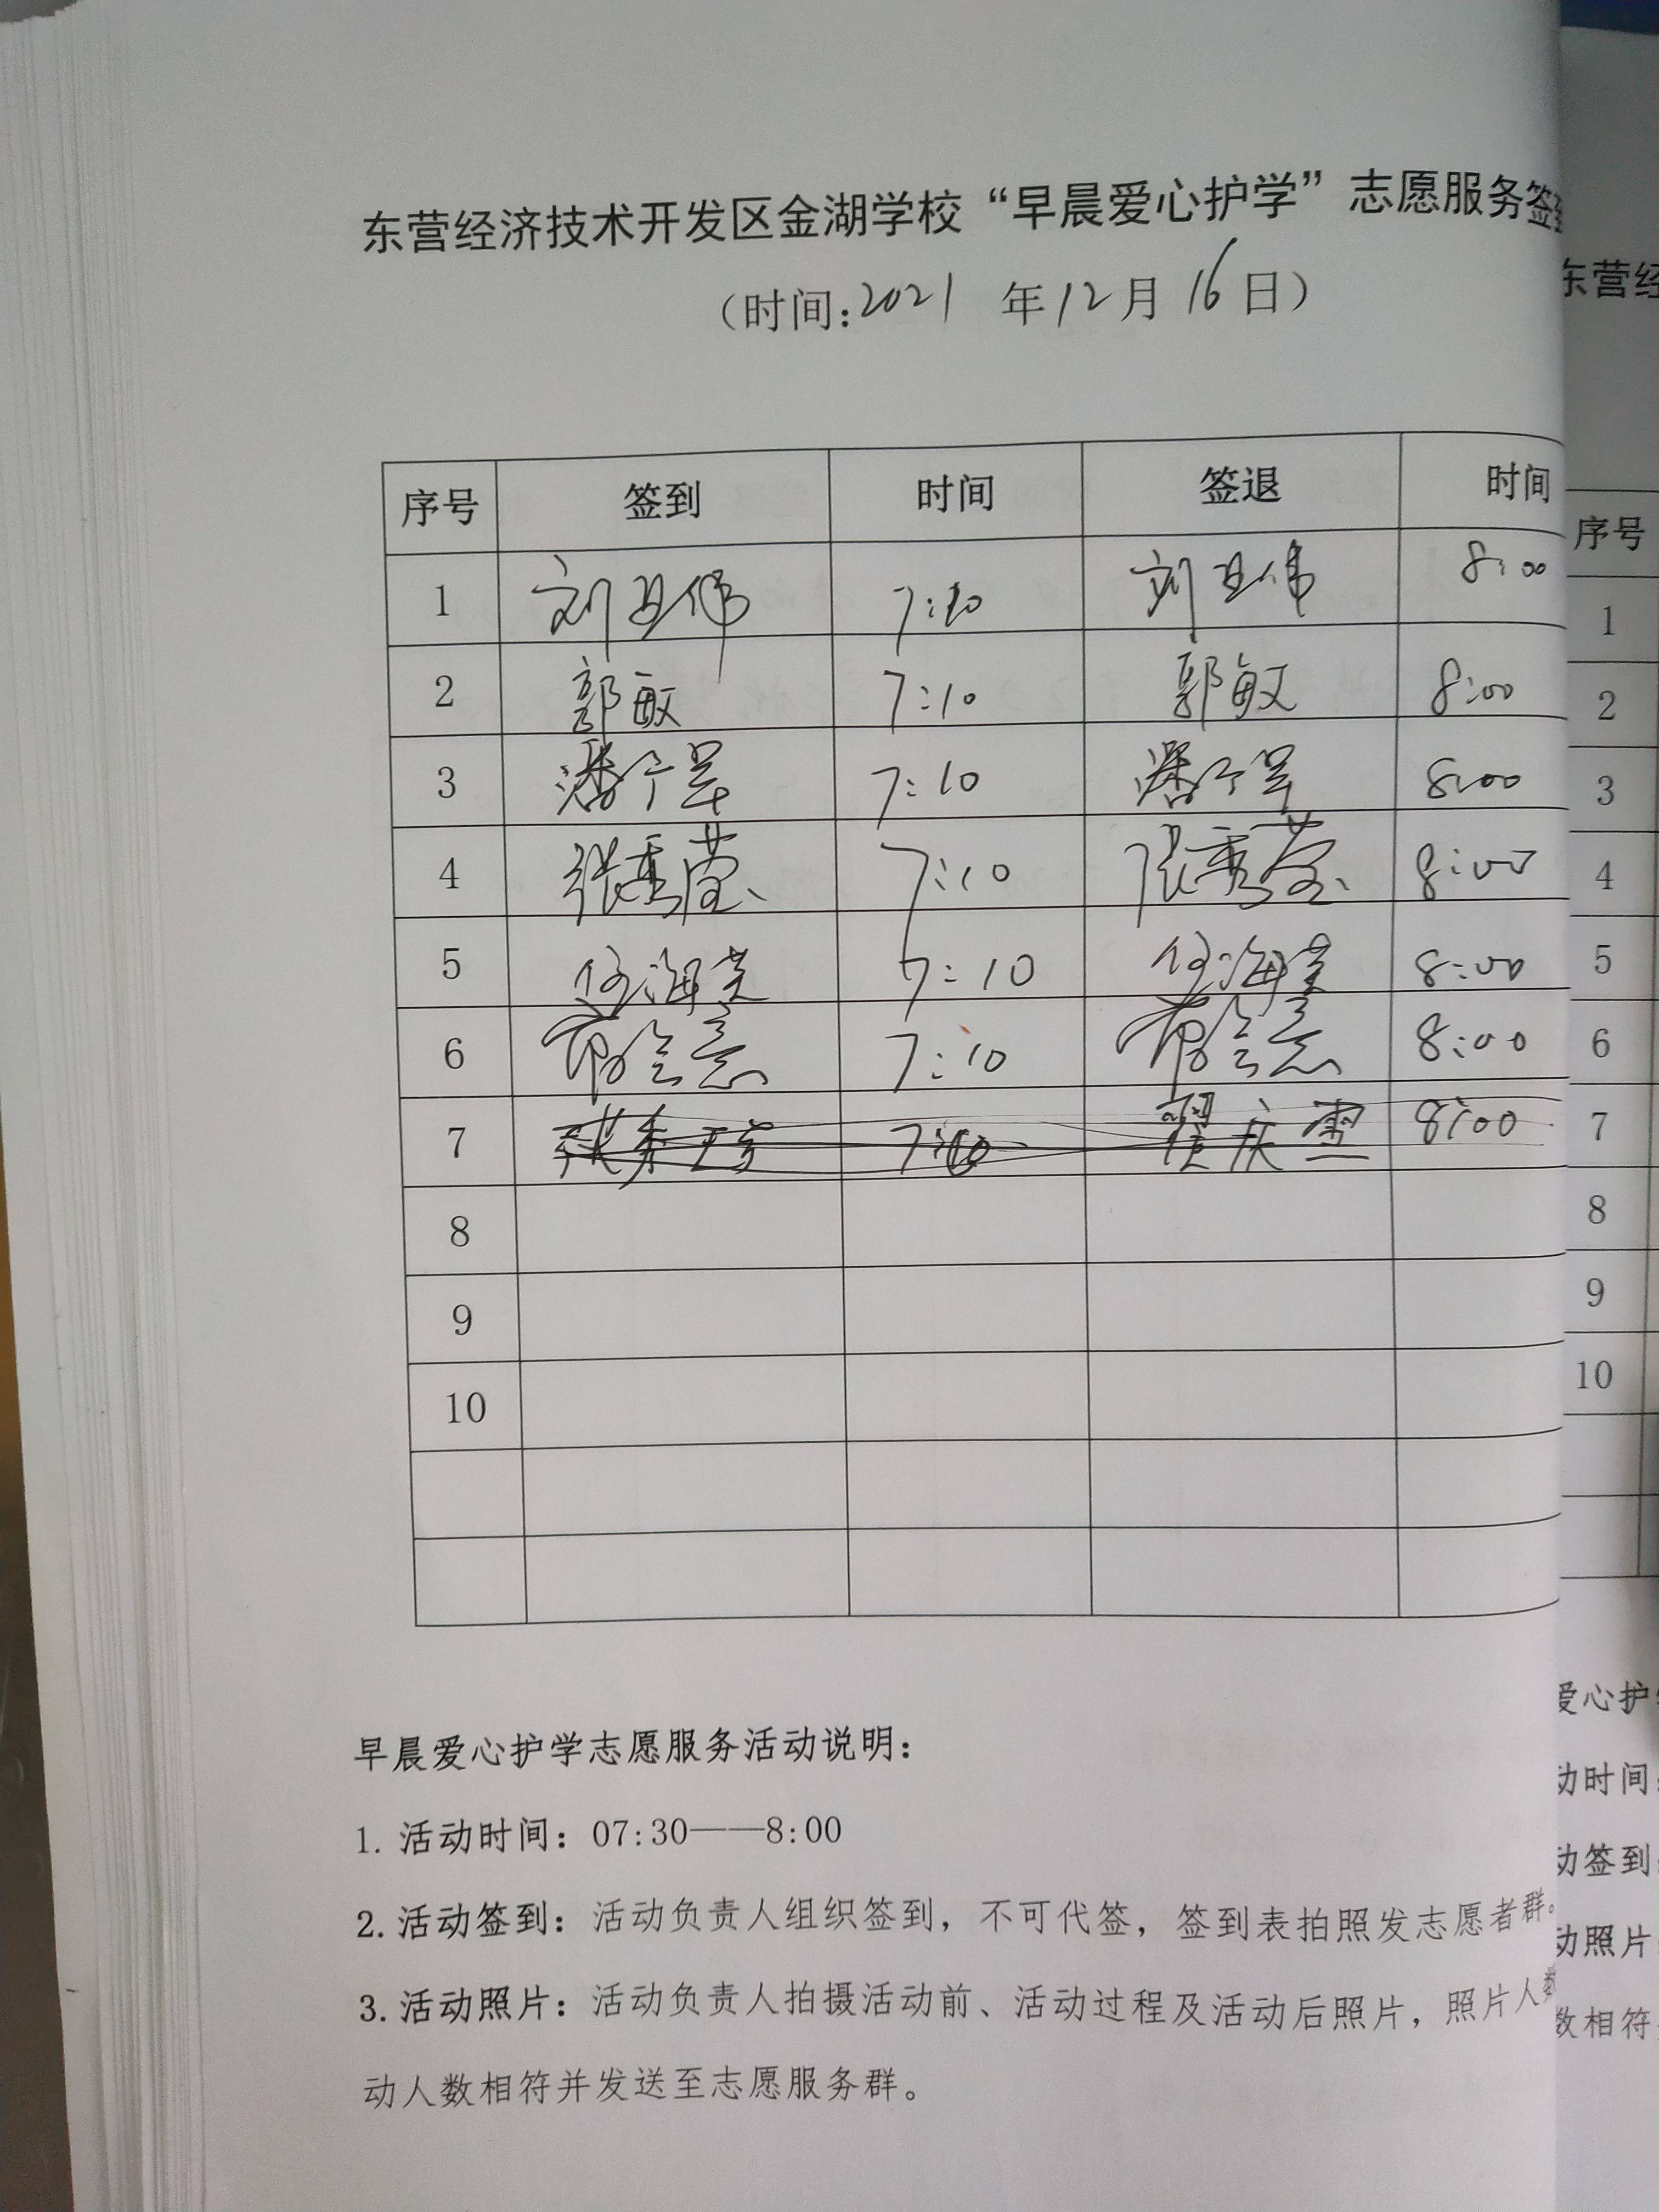 东营经济技术开发区金湖学校“早晨爱心护学”志愿服务签
（时间:2021 年12月16日）
序号 签到 时间 签退 时间
1 刘 伟 7:10 刘 伟 8:00
2 郭敏 7:10 郭敏 8:00
3 潘 7:10 潘 8:00
4 张秀莹 7:10 张秀莹 8:00
5 海英 7:10 海英 8:00
6 7:10 8:00
7 8:00
8
9
10
早晨爱心护学志愿服务活动说明：
1. 活动时间：07:30——8:00
2. 活动签到：活动负责人组织签到，不可代签，签到表拍照发志愿者群。
3. 活动照片：活动负责人拍摄活动前、活动过程及活动后照片，照片人数
动人数相符并发送至志愿服务群。
东营经
序号
1
2
3
4
5
6
7
8
9
10
爱心护
动时间
动签到
动照片
数相符